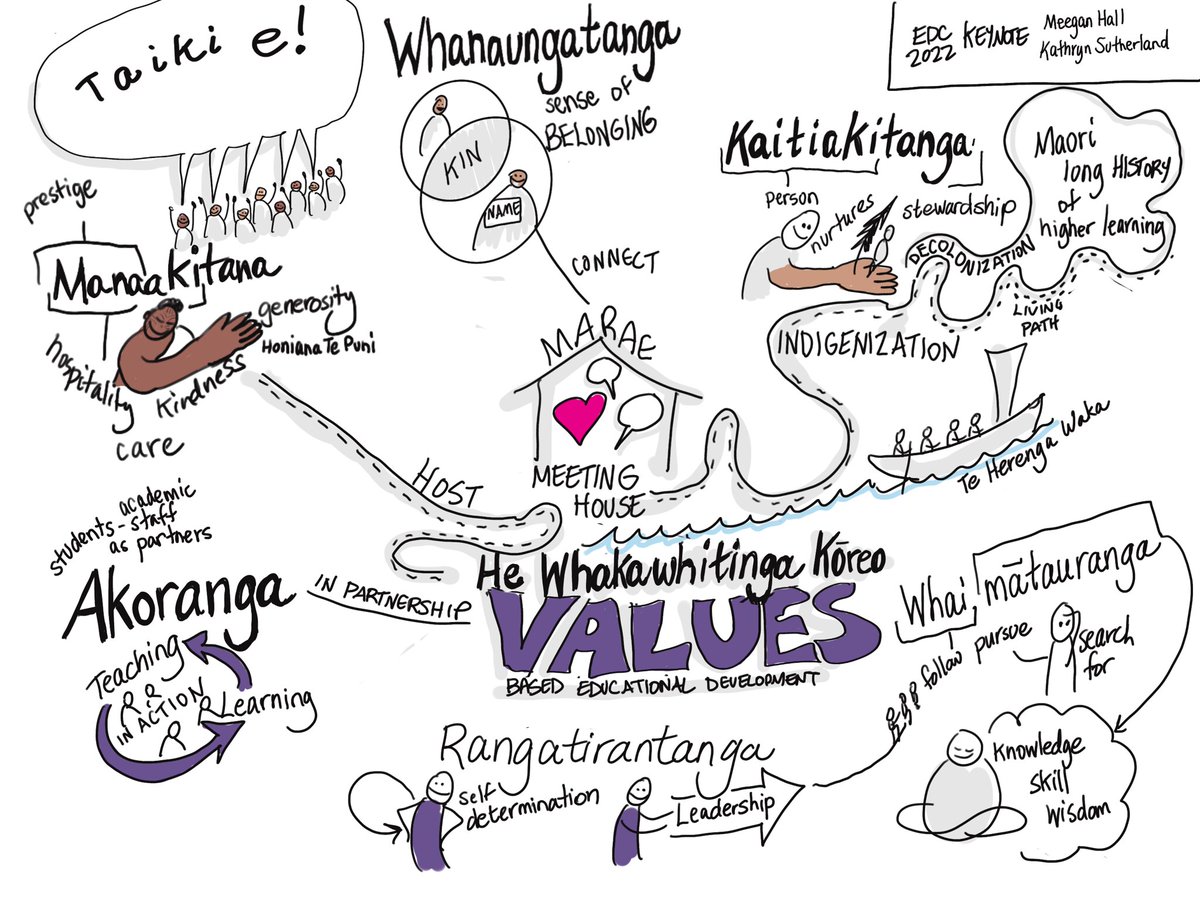 Taiki e!
Whanaungatanga
sense of
BELONGING
KIN
NAME
CONNECT
EDC
2022
KEYNOTE
Meegan Hall
Kathryn Sutherland
Kaitiakitanga
person
nurtures
stewardship
Maori
long HISTORY
of
higher learning
DECOLONIZATION
LIVING
PATH
INDIGENIZATION
prestige
Manaakitana
generosity
Honiana Te Puni
hospitality
Kindness
care
MARAE
MEETING
HOUSE
HOST
Te Herenga Waka
academic
students-staff
as partners
Akoranga
IN PARTNERSHIP
Teaching
IN ACTION
Learning
He Whakawhitinga Kōreo
VALUES
BASED EDUCATIONAL DEVELOPMENT
Whai mātauranga
follow
pursue
search
for
Knowledge
skill
wisdom
Rangatirantanga
self
determination
Leadership